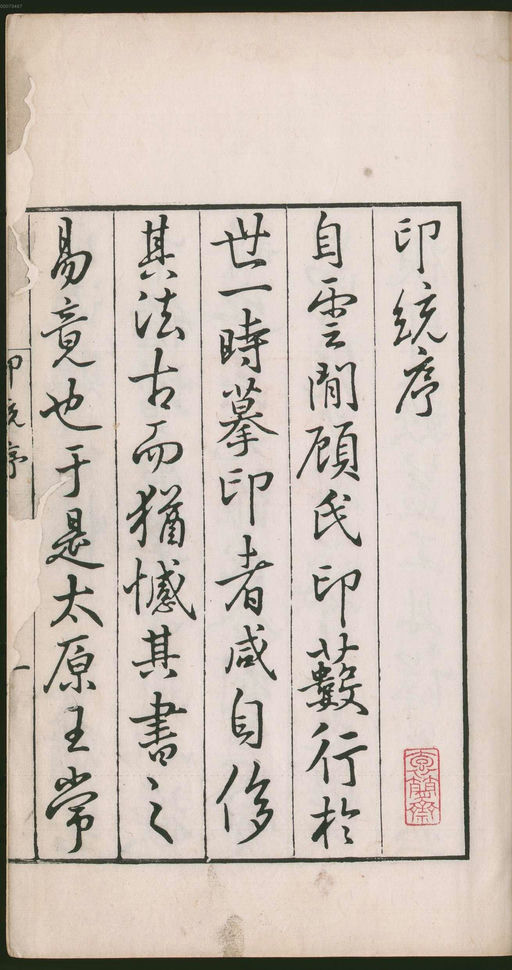 印統序
自雲間顧氏印藪行於
世一時摹印者咸自侈
其法古而猶憾其書之
易竟也于是太原王常
印統序
一
00073467